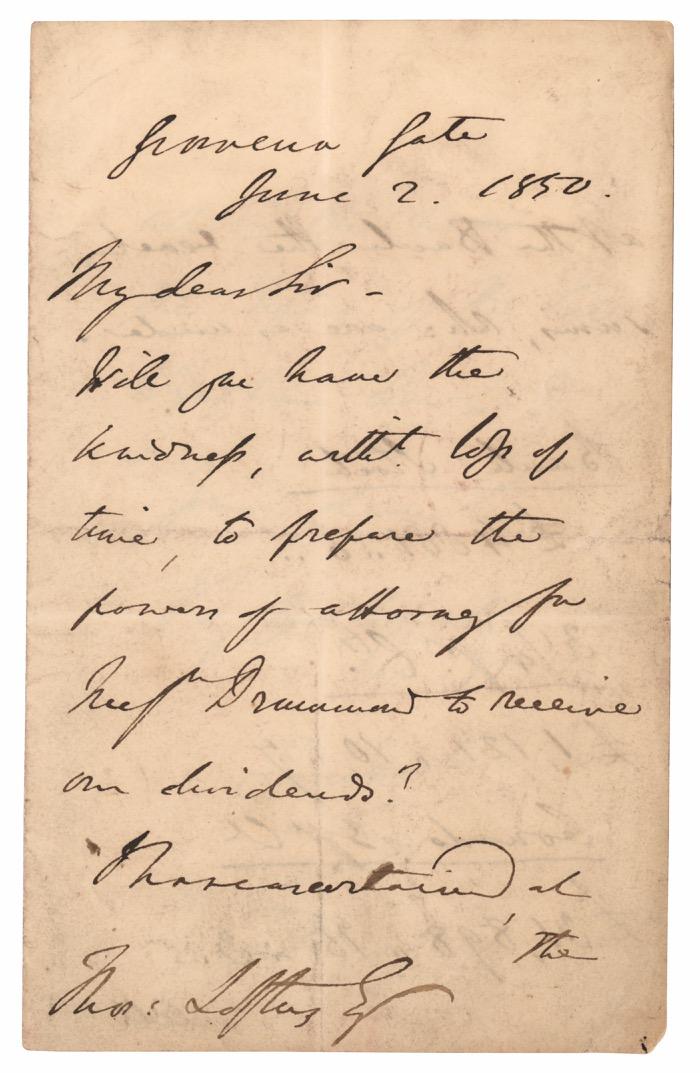 Grosvenor Gate
June 2. 1850.
My dear Sir -
Will you have the
kindness, witht. loss of
time, to prepare the
powers of attorney for
Messrs Drummond to receive
our dividends?
I have ascertained, at
the
Thos: Loftus Esq